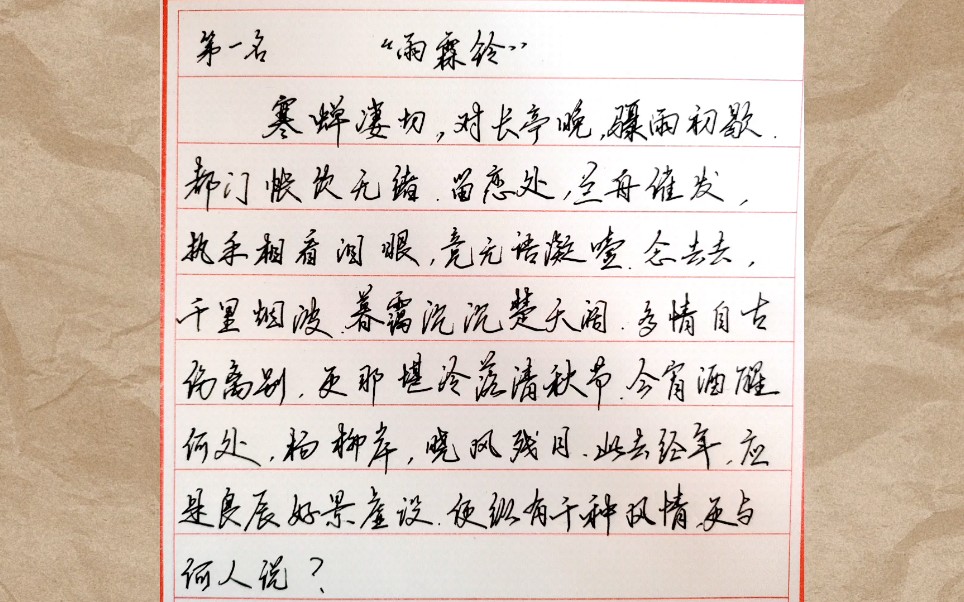 第一名 “雨霖铃”
寒蝉凄切,对长亭晚,骤雨初歇.
都门帐饮无绪.留恋处,兰舟催发,
执手相看泪眼,竟无语凝噎.念去去,
千里烟波.暮霭沉沉楚天阔.多情自古
伤离别,更那堪冷落清秋节.今宵酒醒
何处,杨柳岸,晓风残月.此去经年,应
是良辰好景虚设.便纵有千种风情,更与
何人说?